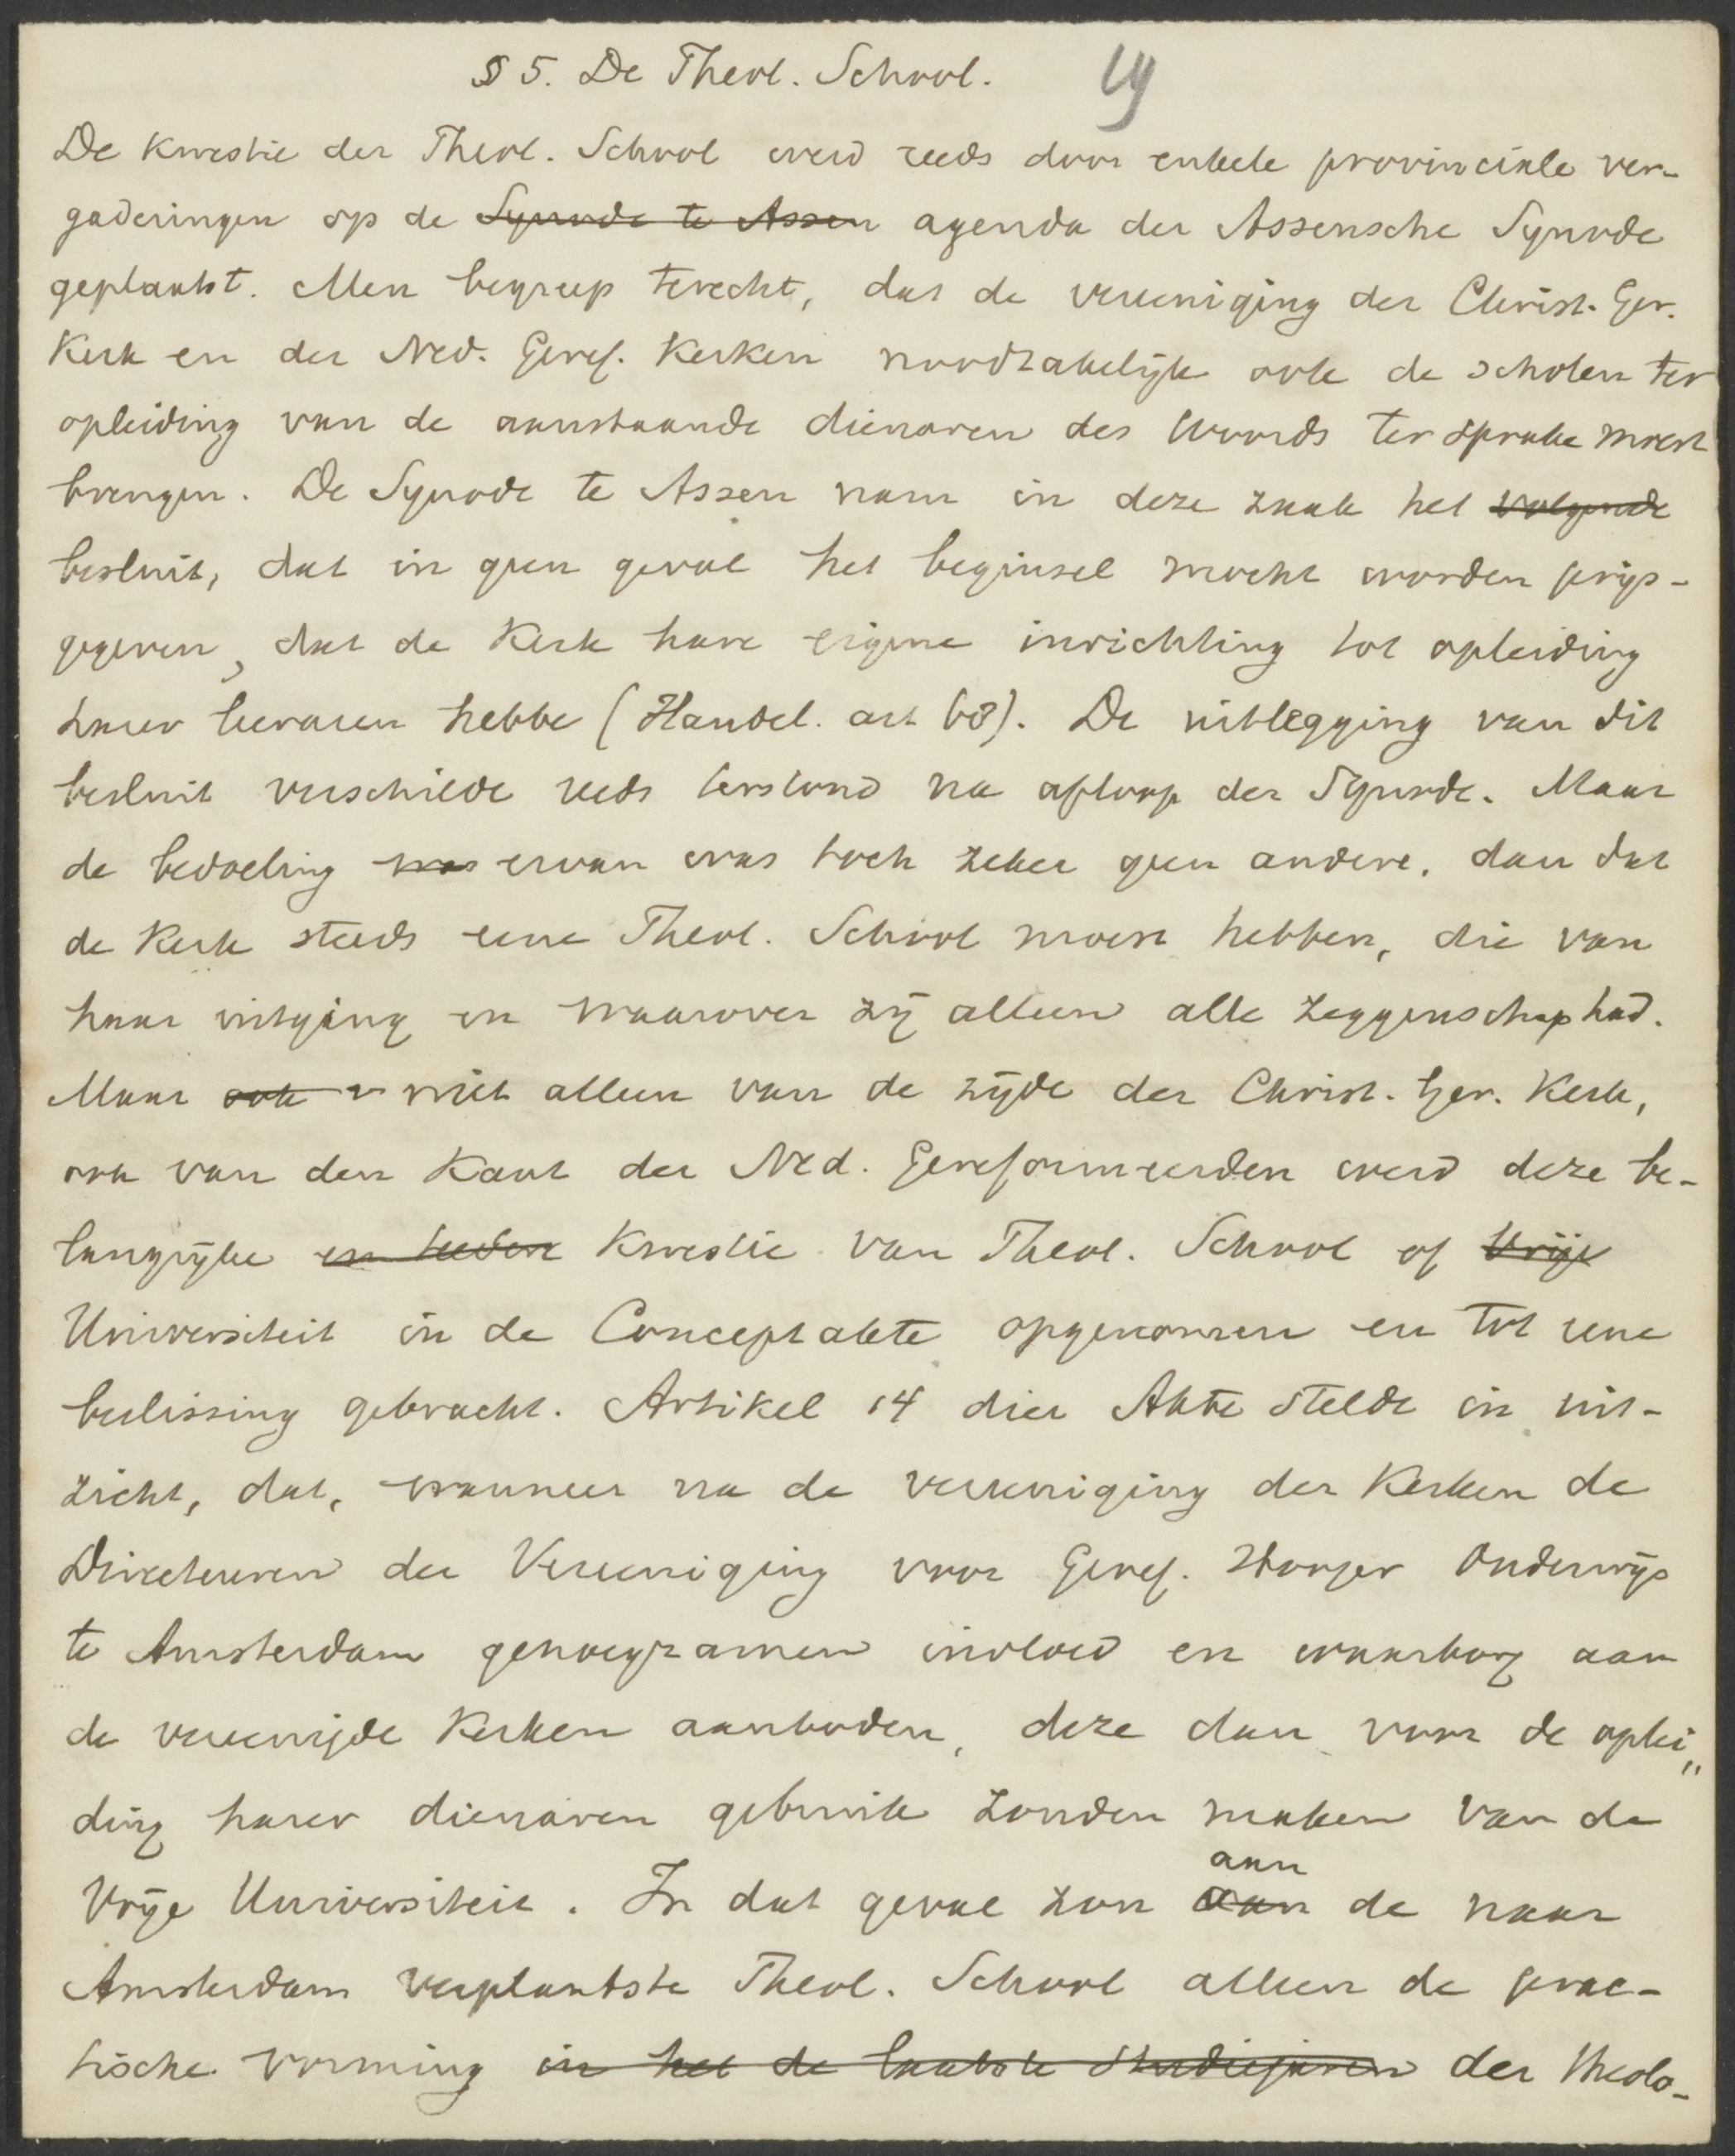 § 5. De Theol. School. 19
De kwestie der Theol. School werd reeds door enkele provinciale ver-
gaderingen op de Synode te Assen agenda der Assensche Synode
geplaatst. Men begreep terecht, dat de vereeniging der Christ. Ger.
Kerk en der Ned. Geref. Kerken noodzakelijk ook de scholen ter
opleiding van de aanstaande dienaren des Woords ter sprake moest
brengen. De Synode te Assen nam in deze zaak het volgende
besluit, dat in geen geval het beginsel mocht worden prijs-
gegeven, dat de Kerk hare eigene inrichting tot opleiding
harer leeraren hebbe (Handel. art 68). De uitlegging van dit
besluit verschilde reeds terstond na afloop der Synode. Maar
de bedoeling was ervan was toch zeker geen andere, dan dat
de Kerk steeds eene Theol. School moest hebben, die van
haar uitging en waarover zij alleen alle zeggenschap had.
Maar ook v niet alleen van de zijde der Christ. Ger. Kerk,
ook van den kant der Ned. Gereformeerden werd deze be-
langrijke en teedere kwestie van Theol. School of Vrije
Universiteit in de Conceptakte opgenomen en tot eene
beslissing gebracht. Artikel 14 dier Akte stelde in uit-
zicht, dat, wanneer na de vereeniging der Kerken de
Directeuren der Vereeniging voor Geref. Hooger Onderwijs
te Amsterdam genoegzamen invloed en waarborg aan
de vereenigde Kerken aanboden, deze dan voor de oplei„
ding harer dienaren gebruik zouden maken van de
aan
Vrije Universiteit. In dat geval zou aan de naar
Amsterdam verplaatste Theol. School alleen de prac-
tische vorming in het de laatste studiejaren der theolo-